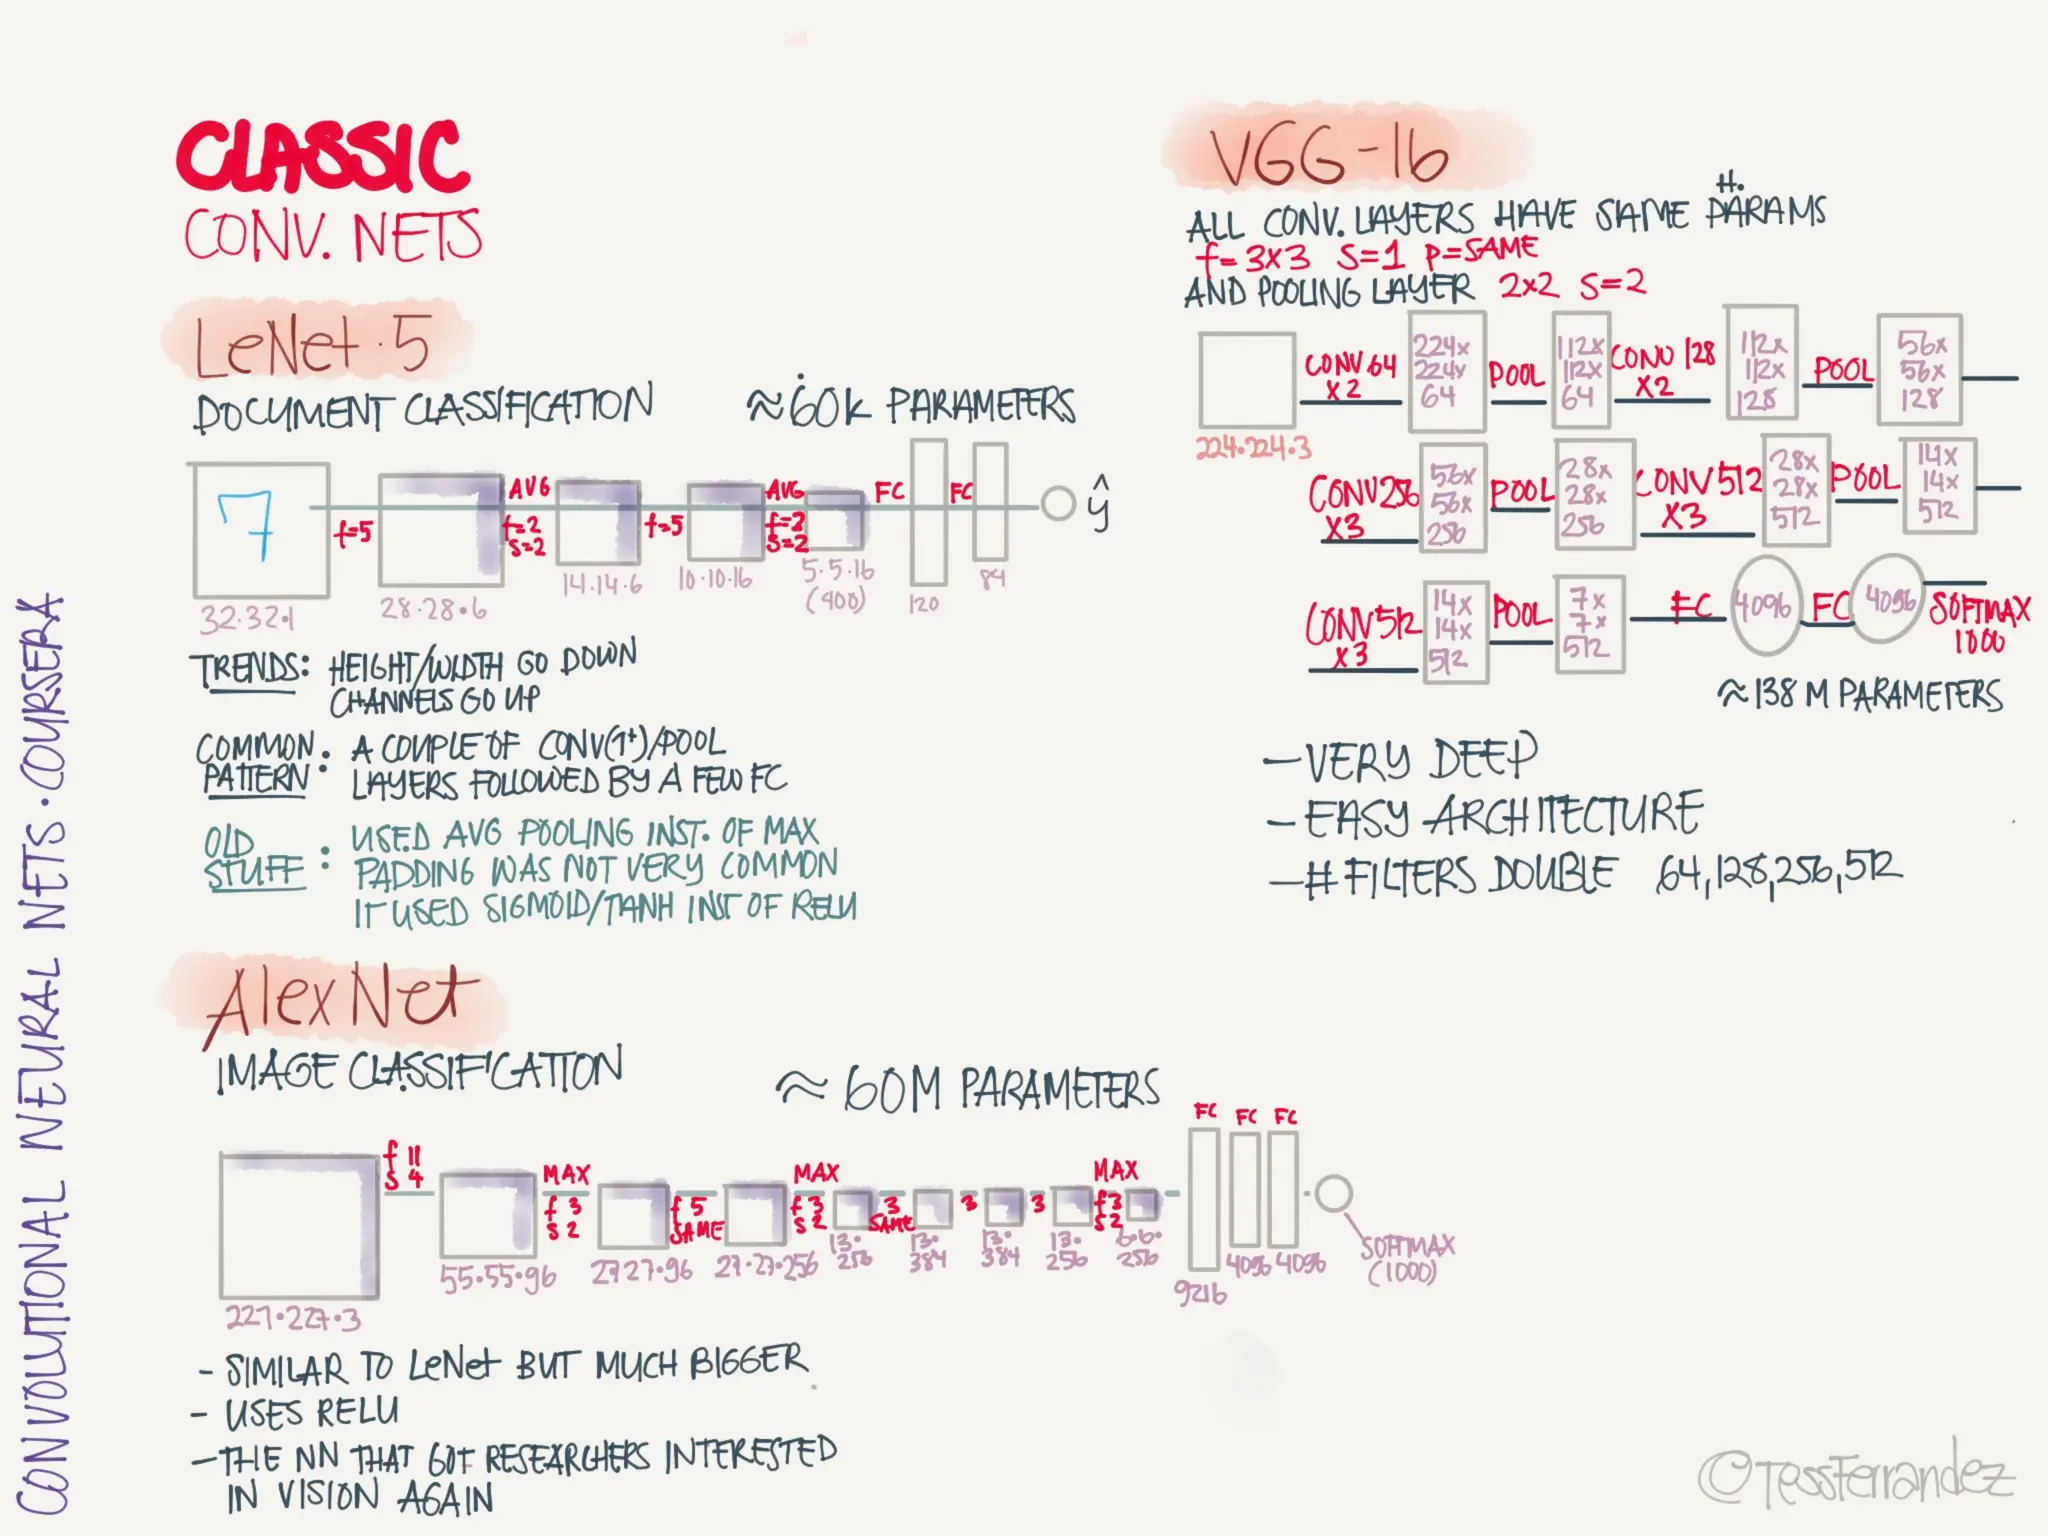 CLASSIC
CONV. NETS
LeNet·5
DOCUMENT CLASSIFICATION ≈60K PARAMETERS
7
f=5
AVG
f=2
s=2
f=5
AVG
f=2
s=2
FC
FC
ŷ
32·32·1
28·28·6
14·14·6
10·10·16
5·5·16
(400)
120
84
TRENDS: HEIGHT/WIDTH GO DOWN
CHANNELS GO UP
COMMON PATTERN: A COUPLE OF CONV(1+)/POOL
LAYERS FOLLOWED BY A FEW FC
OLD STUFF: USED AVG POOLING INST. OF MAX
PADDING WAS NOT VERY COMMON
IT USED SIGMOID/TANH INST OF RELU
AlexNet
IMAGE CLASSIFICATION ≈ 60M PARAMETERS
f 11
s 4
MAX
f 3
s 2
f 5
SAME
MAX
f 3
s 2
3
SAME
3
3
MAX
f 3
s 2
FC FC FC
227·227·3
55·55·96
27 27·96
27·27·256
13·
256
13·
384
13·
384
13·
256
6·6·
256
9216
4096 4096
SOFTMAX
(1000)
- SIMILAR TO LeNet BUT MUCH BIGGER
- USES RELU
- THE NN THAT GOT RESEARCHERS INTERESTED
IN VISION AGAIN
VGG-16
H.
ALL CONV. LAYERS HAVE SAME PARAMS
f=3x3 S=1 P=SAME
AND POOLING LAYER 2x2 S=2
224·224·3
CONV 64
X2
224x
224x
64
POOL
112x
112x
64
CONV 128
X2
112x
112x
128
POOL
56x
56x
128
CONV 256
X3
56x
56x
256
POOL
28x
28x
256
CONV 512
X3
28x
28x
512
POOL
14x
14x
512
CONV 512
X3
14x
14x
512
POOL
7x
7x
512
FC
4096
FC
4096
SOFTMAX
1000
≈138 M PARAMETERS
- VERY DEEP
- EASY ARCHITECTURE
- # FILTERS DOUBLE 64,128,256,512
CONVOLUTIONAL NEURAL NETS · COURSERA
@TessFerrandez